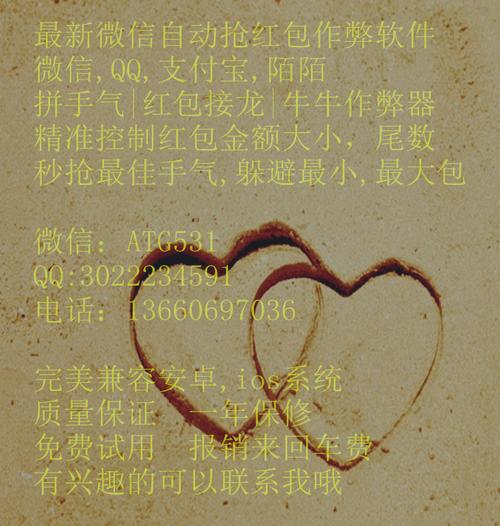 最新微信自动抢红包作弊软件
微信,QQ,支付宝,陌陌
拼手气|红包接龙|牛牛作弊器
精准控制红包金额大小，尾数
秒抢最佳手气,躲避最小,最大包
微信：ATG531
QQ:3022234591
电话：13660697036
完美兼容安卓,ios系统
质量保证　一年保修
免费试用　报销来回车费
有兴趣的可以联系我哦